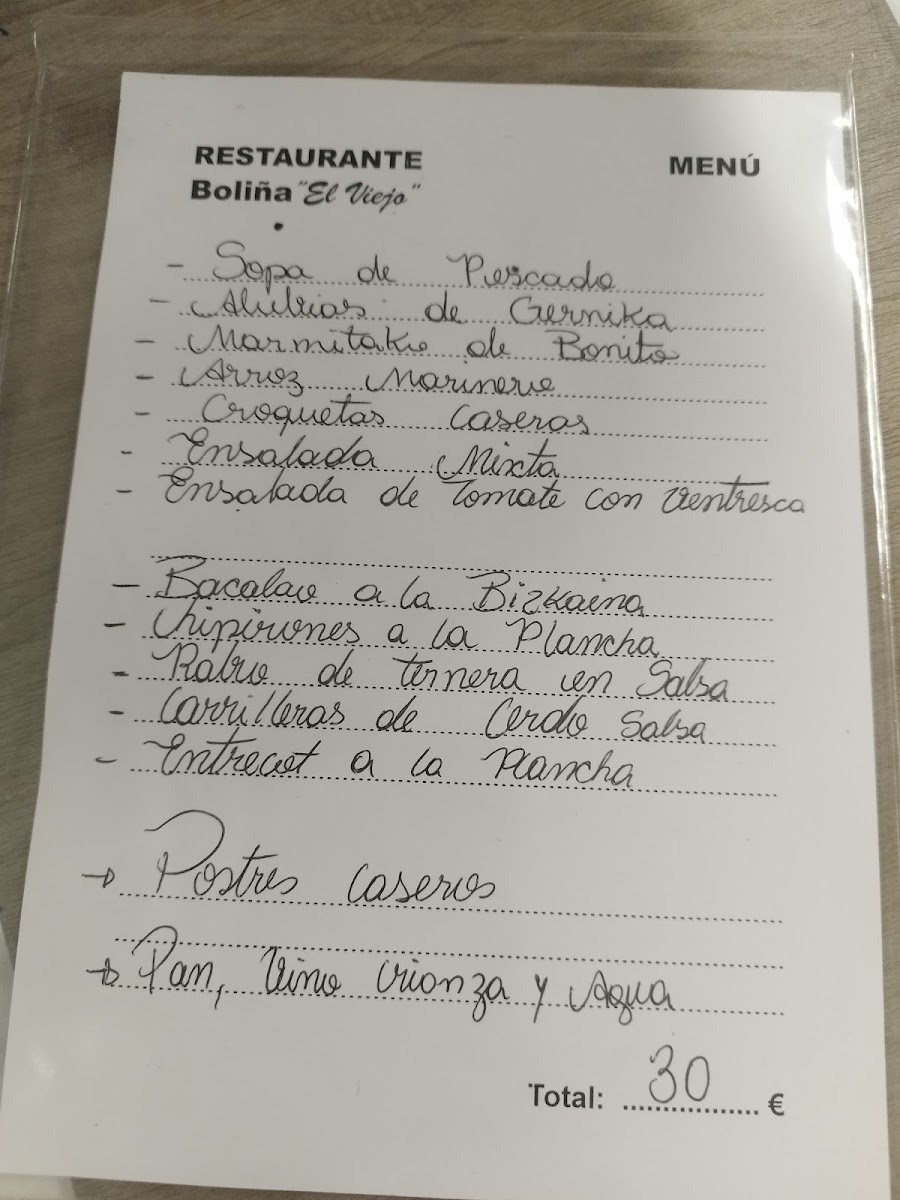 RESTAURANTE
MENÚ
Boliña "El Viejo"
- Sopa de Pescado
- Alubias de Gernika
- Marmitako de Bonito
- Arroz Marinero
- Croquetas Caseras
- Ensalada Mixta
- Ensalada de Tomate con Ventresca
- Bacalao a la Bizkaina
- Chipirones a la Plancha
- Rabo de ternera en Salsa
- Carrilleras de Cerdo Salsa
- Entrecot a la Plancha
→ Postres Caseros
→ Pan, Vino Crianza y Agua
Total: 30 €